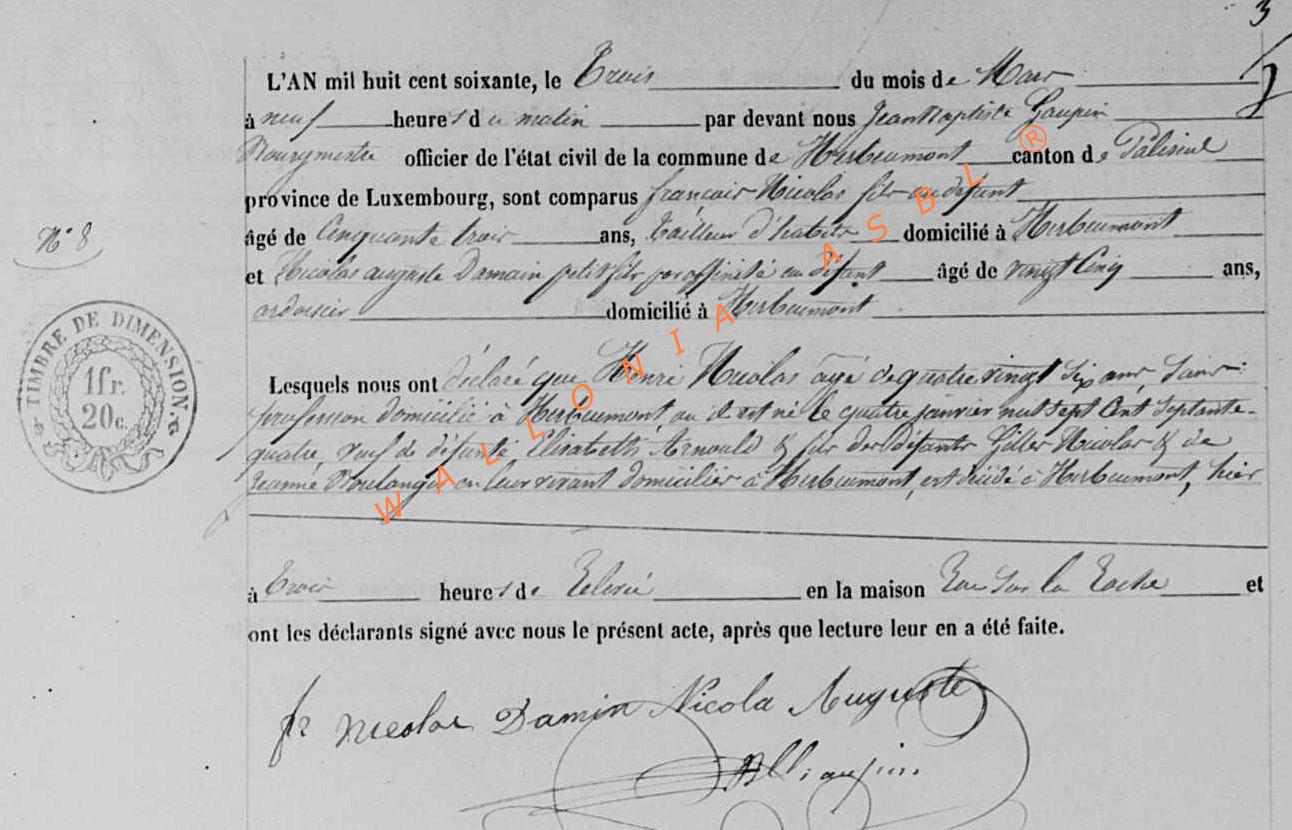 3
L'AN mil huit cent soixante, le Trois du mois de Mars
à neuf heures du matin par devant nous Jean Baptiste Gaupin
Bourgmestre officier de l'état civil de la commune de Herbeumont canton de Paliseul
province de Luxembourg, sont comparus françois Nicolas fils au défunt
N° 8
âgé de Cinquante trois ans, tailleur d'habits domicilié à Herbeumont
et Nicolas auguste Damain petit fils par affinité au défunt âgé de vingt Cinq ans,
ardoisier domicilié à Herbeumont
TIMBRE DE DIMENSION.
1 fr.
20 c.
Lesquels nous ont déclaré que Henri Nicolas âgé de quatre vingt six ans, sans
profession domicilié à Herbeumont, où il est né le quatre janvier mil sept Cent Septante-
quatre, veuf de défunte Elisabeth Arnould & fils des défunts Gilles Nicolas & de
Jeanne Boulanger en leur vivant domiciliés à Herbeumont, est décédé à Herbeumont, hier
à Trois heures de Relevée en la maison Rue Sur la Roche et
ont les déclarants signé avec nous le présent acte, après que lecture leur en a été faite.
fr Nicolas Damin Nicola Auguste
WALLONIA ASBL ®